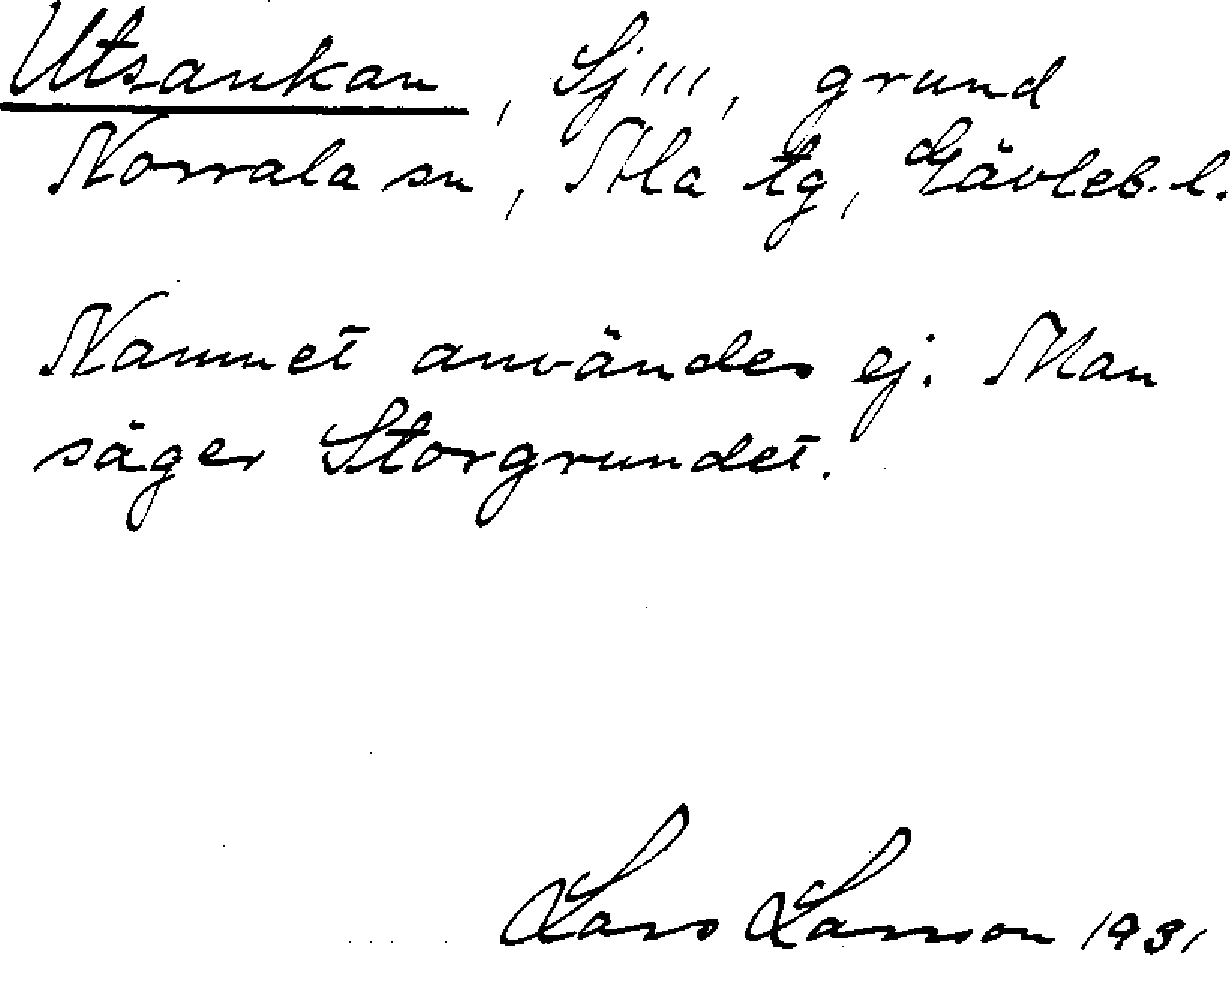 Utsankan, Sj''', grund
Norrala sn, Ala tg, Gävleb. l.
Namnet användes ej. Man
säger Storgrundet.
Lars Larsson 1931